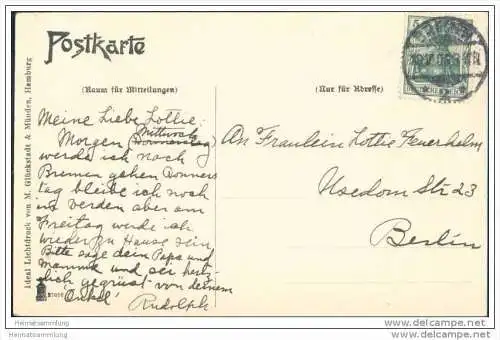 Postkarte
(Raum für Mitteilungen)
(Nur für Adresse)
Meine Liebe Lottie
Mittwoch
Morgen (Donnerstag)
werde ich nach
Bremen gehen Donners
tag bleibe ich noch
in Verden aber am
Freitag werde ich
wieder zu Hause sein
Bitte sage dein Papa und
Mamma und sei herz-
lich gegrüst von deinem
Onkel
Rudolph
An Fraulein Lottie Feuerhelm
Usedom Str 23
Berlin
Ideal Lichtdruck von M. Glückstadt & Münden, Hamburg
DEUTSCHES REICH
Heimatsammlung
Heimatsammlung.de
www.heimatsammlung.de